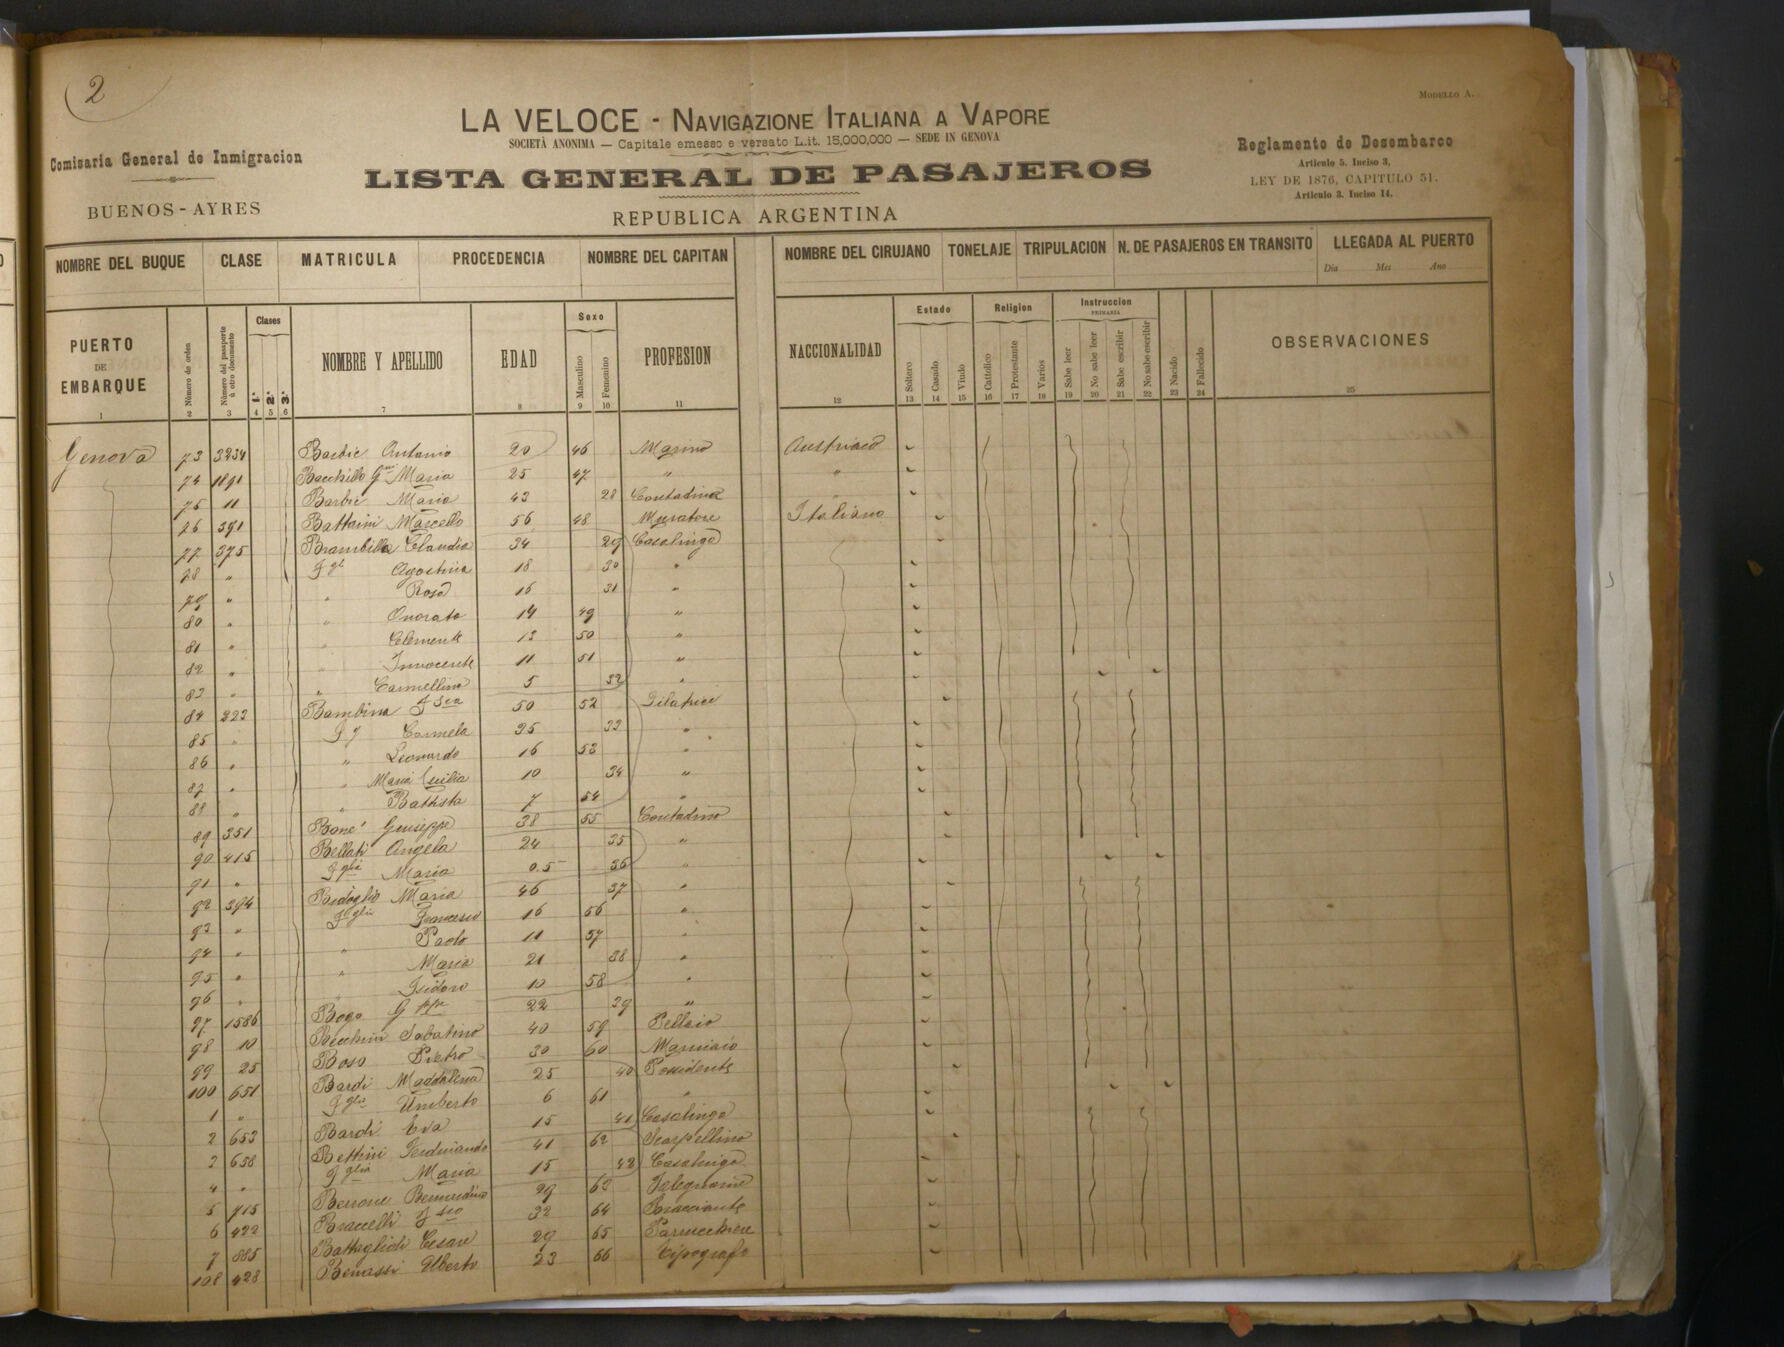 2
MODELLO A.
LA VELOCE - NAVIGAZIONE ITALIANA A VAPORE
SOCIETÀ ANONIMA — Capitale emesso e versato L.it. 15,000,000 — SEDE IN GENOVA
Comisaria General de Inmigracion
BUENOS-AYRES
LISTA GENERAL DE PASAJEROS
REPUBLICA ARGENTINA
Reglamento de Desembarco
Articulo 5. Inciso 3,
LEY DE 1876, CAPITULO 51.
Articulo 3. Inciso 14.
NOMBRE DEL BUQUE CLASE MATRICULA PROCEDENCIA NOMBRE DEL CAPITAN NOMBRE DEL CIRUJANO TONELAJE TRIPULACION N. DE PASAJEROS EN TRANSITO LLEGADA AL PUERTO
Dia Mes Ano
PUERTO DE EMBARQUE Número de orden Número del pasaporte ú otro documento Clases 1ª 2ª 3ª NOMBRE Y APELLIDO EDAD Sexo Masculino Femenino PROFESION NACCIONALIDAD Estado Soltero Casado Viudo Religion Cattolico Protestante Varios Instruccion PRIMARIA Sabe leer No sabe leer Sabe escribir No sabe escribir Nacido Fallecido OBSERVACIONES
1 2 3 4 5 6 7 8 9 10 11 12 13 14 15 16 17 18 19 20 21 22 23 24 25
Genova 73 3234 Barbic Antonio 20 46 Marino Austriaco
74 1891 Maria 25 47 " "
75 11 Barbic Maria 43 28 Contadina
76 391 Battaini Marcello 56 48 Muratore Italiano
77 375 Brambilla Claudia 34 29 Casalinga
78 " Agostina 18 30 "
79 " " Rosa 16 31 "
80 " " Onorato 14 49 "
81 " " Clemente 13 50 "
82 " " Innocente 11 51 "
83 " " Carmellina 5 32 "
84 323 Bambina 50 52 Filatrice
85 " Carmela 35 33 "
86 " " Leonardo 16 53 "
87 " " Maria Cecilia 10 34 "
88 " " Battista 7 54 "
89 351 Bone' Giuseppe 38 55 Contadino
90 415 Bellati Angela 24 35 "
91 " F glia Maria 0.5 36 "
92 394 Badoglio Maria 46 37 "
93 " F gli Francesco 16 56 "
94 " " Paolo 11 57 "
95 " " Maria 21 38 "
96 " " Isidoro 10 58 "
97 1586 Bogo 22 39 "
98 10 Sabatino 40 59 Pellaio
99 25 Boso Pietro 30 60
100 651 Bardi Maddalena 25 40 Possidente
1 " F glio Umberto 6 61 "
2 653 Bardi Eva 15 41 Casalinga
3 658 Bettini Ferdinando 41 62 Scarpellino
4 " F glia Maria 15 42 Casalinga
5 715 Bernardino 29 63 Falegname
6 422 Braccelli 32 64 Bracciante
7 885 Battaglioli Cesare 29 65 Parrucchiere
108 428 Benassi Alberto 23 66 Tipografo